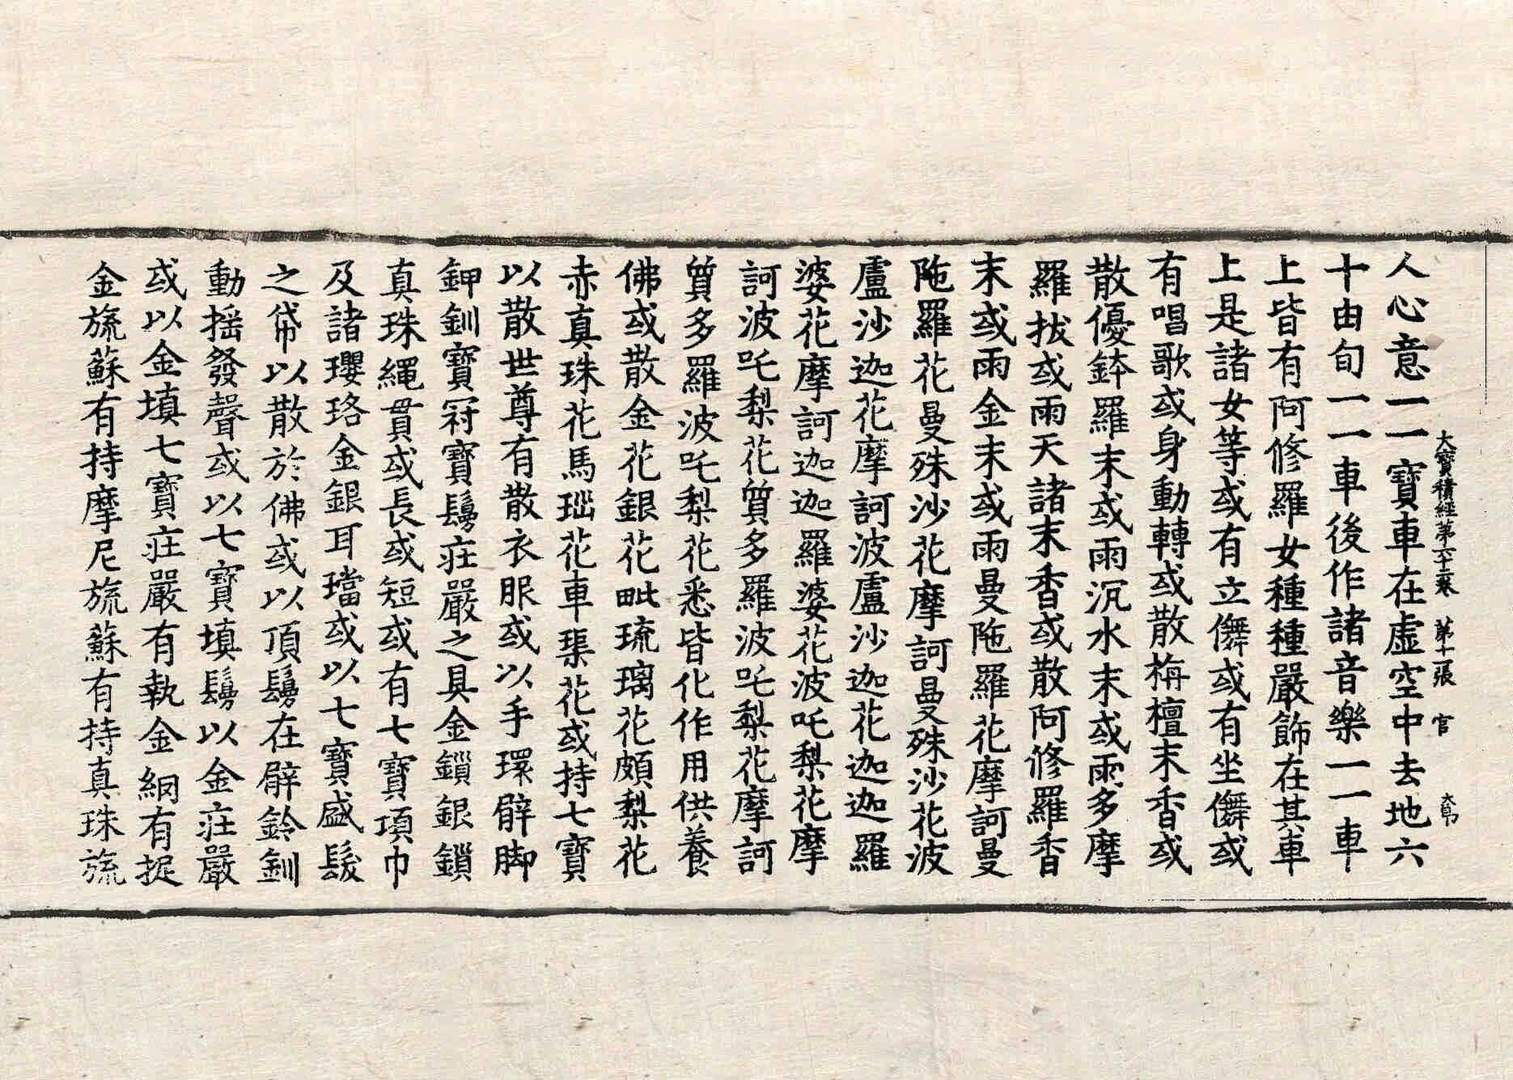 大寶積經第六十三卷　第十張　官
人心意一一寶車在虛空中去地六
十由旬一一車後作諸音樂一一車
上皆有阿修羅女種種嚴飾在其車
上是諸女等或有立儛或有坐儛或
有唱歌或身動轉或散栴檀末香或
散優鉢羅末或雨沉水末或雨多摩
羅拔或雨天諸末香或散阿修羅香
末或雨金末或雨曼陁羅花摩訶曼
陁羅花曼殊沙花摩訶曼殊沙花波
盧沙迦花摩訶波盧沙迦花迦迦羅
婆花摩訶迦迦羅婆花波吒梨花摩
訶波吒梨花質多羅波吒梨花摩訶
質多羅波吒梨花悉皆化作用供養
佛或散金花銀花毗琉璃花頗梨花
赤真珠花馬瑙花車渠花或持七寶
以散世尊有散衣服或以手環臂脚
鉀釧寶冠寶鬘莊嚴之具金鎖銀鎖
真珠繩貫或長或短或有七寶項巾
及諸瓔珞金銀耳璫或以七寶盛髮
之帒以散於佛或以頂鬘在臂鈴釧
動搖發聲或以七寶填鬘以金莊嚴
或以金填七寶莊嚴有執金網有捉
金旒蘇有持摩尼旒蘇有持真珠旒